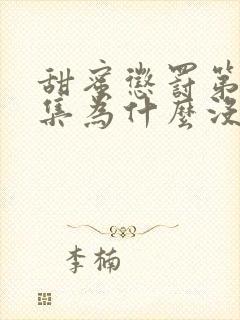 甜蜜懲罰第
集為什麼沒
李楠